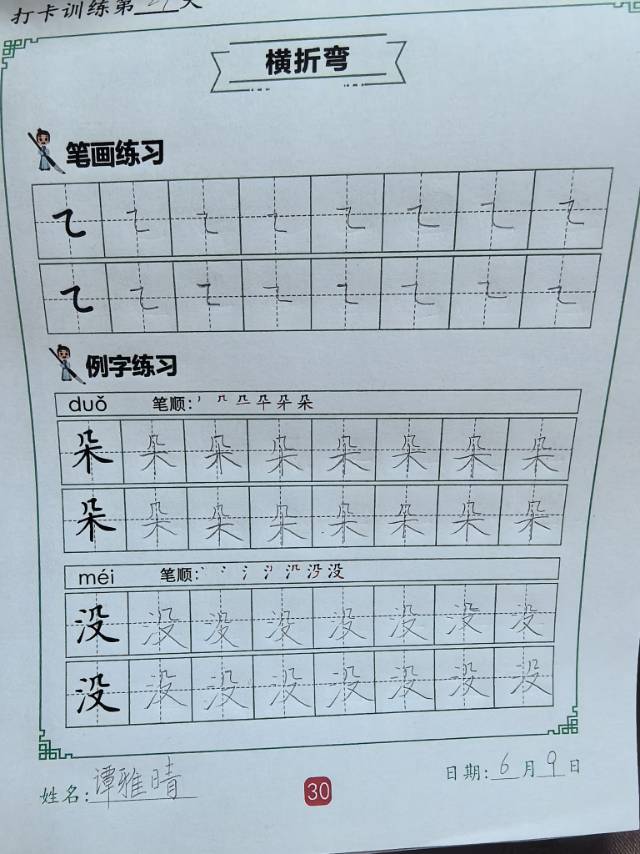 打卡训练第29天
横折弯
笔画练习
例字练习
duǒ 笔顺:
朵 朵 朵 朵 朵 朵 朵 朵
朵 朵 朵 朵 朵 朵 朵 朵
méi 笔顺:
没 没 没 没 没 没 没 没
没 没 没 没 没 没 没 没
姓名:谭雅晴 30 日期:6月9日